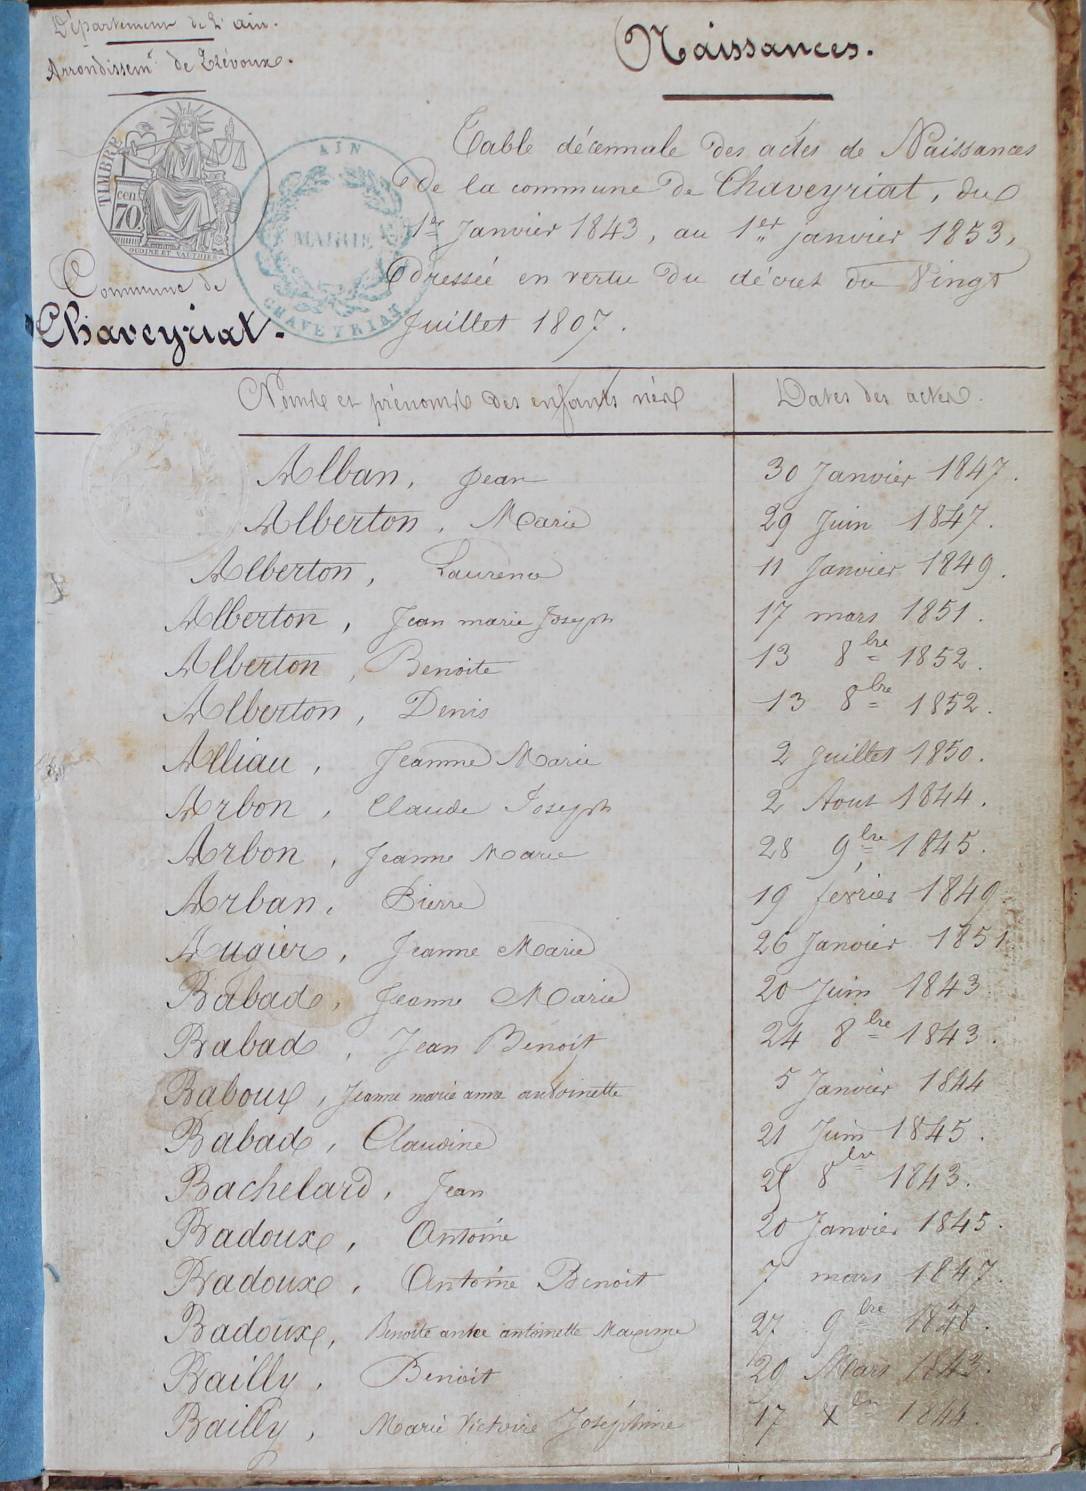 Département de l'ain.
Arrondissemt de Trévoux.
Naissances.
TIMBRE
cen.
70.
OUDINÉ ET VAUTHIER
AIN
MAIRIE
CHAVEYRIAT
Commune de
Chaveyriat.
Table décennale des actes de Naissances
de la commune de Chaveyriat, du
1er Janvier 1843, au 1er janvier 1853,
Dressée en vertu du décret du Vingt
Juillet 1807.
Noms et prénoms des enfants nés Dates des actes.
Alban, Jean 30 Janvier 1847.
Alberton, Marie 29 Juin 1847.
Alberton, Laurence 11 Janvier 1849.
Alberton, Jean marie Joseph 17 mars 1851.
Alberton, Benoite 13 8bre 1852.
Alberton, Denis 13 8bre 1852.
Alliau, Jeanne Marie 2 Juillet 1850.
Arbon, Claude Joseph 2 Aout 1844.
Arbon, Jeanne Marie 28 9bre 1845.
Arban, Pierre 19 février 1849.
Augier, Jeanne Marie 26 Janvier 1851
Babad, Jeanne Marie 20 Juin 1843
Babad, Jean Benoit 24 8bre 1843.
Baboux, Jeanne marie anne antoinette 5 Janvier 1844
Babad, Claudine 21 Juin 1845.
Bachelard, Jean 8bre 1843.
Badoux, Antoine 20 Janvier 1845.
Badoux, Antoine Benoit 7 mars 1847.
Badoux, Benoite antoinette 27 9bre 1848.
Bailly, Benoit 20 Mars 1843.
Bailly, Marie Victoire Joséphine 17 Xbre 1844.